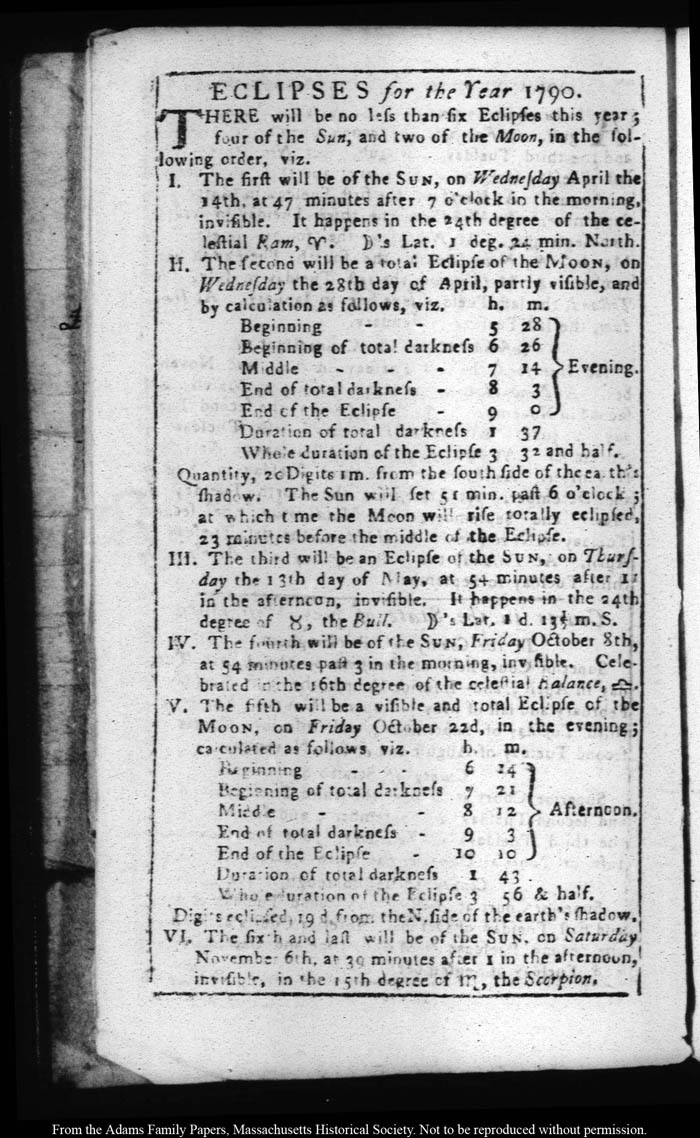 ECLIPSES for the Year 1790.
THERE will be no leſs than ſix Eclipſes this year;
four of the Sun, and two of the Moon, in the fol-
lowing order, viz.
I. The firſt will be of the SUN, on Wedneſday April the
14th, at 47 minutes after 7 o'clock in the morning,
inviſible. It happens in the 24th degree of the ce-
leſtial Ram, ♈. ☽'s Lat. 1 deg. 24 min. North.
II. The ſecond will be a total Eclipſe of the MOON, on
Wedneſday the 28th day of April, partly viſible, and
by calculation as follows, viz. h. m.
Beginning - - 5 28
Beginning of total darkneſs 6 26
Middle - - - 7 14 } Evening.
End of total darkneſs - 8 3
End of the Eclipſe - 9 0
Duration of total darkneſs 1 37
Whole duration of the Eclipſe 3 32 and half.
Quantity, 20 Digits 1m. from the ſouth ſide of the earth's
ſhadow. The Sun will ſet 51 min. paſt 6 o'clock;
at which time the Moon will riſe totally eclipſed,
23 minutes before the middle of the Eclipſe.
III. The third will be an Eclipſe of the SUN, on Thurſ-
day the 13th day of May, at 54 minutes after 11
in the afternoon, inviſible. It happens in the 24th
degree of ♉, the Bull. ☽'s Lat. 1 d. 13½ m. S.
IV. The fourth will be of the SUN, Friday October 8th,
at 54 minutes paſt 3 in the morning, inviſible. Cele-
brated in the 16th degree of the celeſtial Balance, ♎.
V. The fifth will be a viſible and total Eclipſe of the
MOON, on Friday October 22d, in the evening;
calculated as follows viz. h. m.
Beginning - - 6 14
Beginning of total darkneſs 7 21
Middle - - 8 12 } Afternoon.
End of total darkneſs - 9 3
End of the Eclipſe - 10 10
Duration of total darkneſs 1 43
Whole duration of the Eclipſe 3 56 & half.
Digits eclipſed, 19 d. from the N. ſide of the earth's ſhadow.
VI. The ſixth and laſt will be of the SUN, on Saturday
November 6th, at 39 minutes after 1 in the afternoon,
inviſible, in the 15th degree of ♏, the Scorpion.
From the Adams Family Papers, Massachusetts Historical Society. Not to be reproduced without permission.